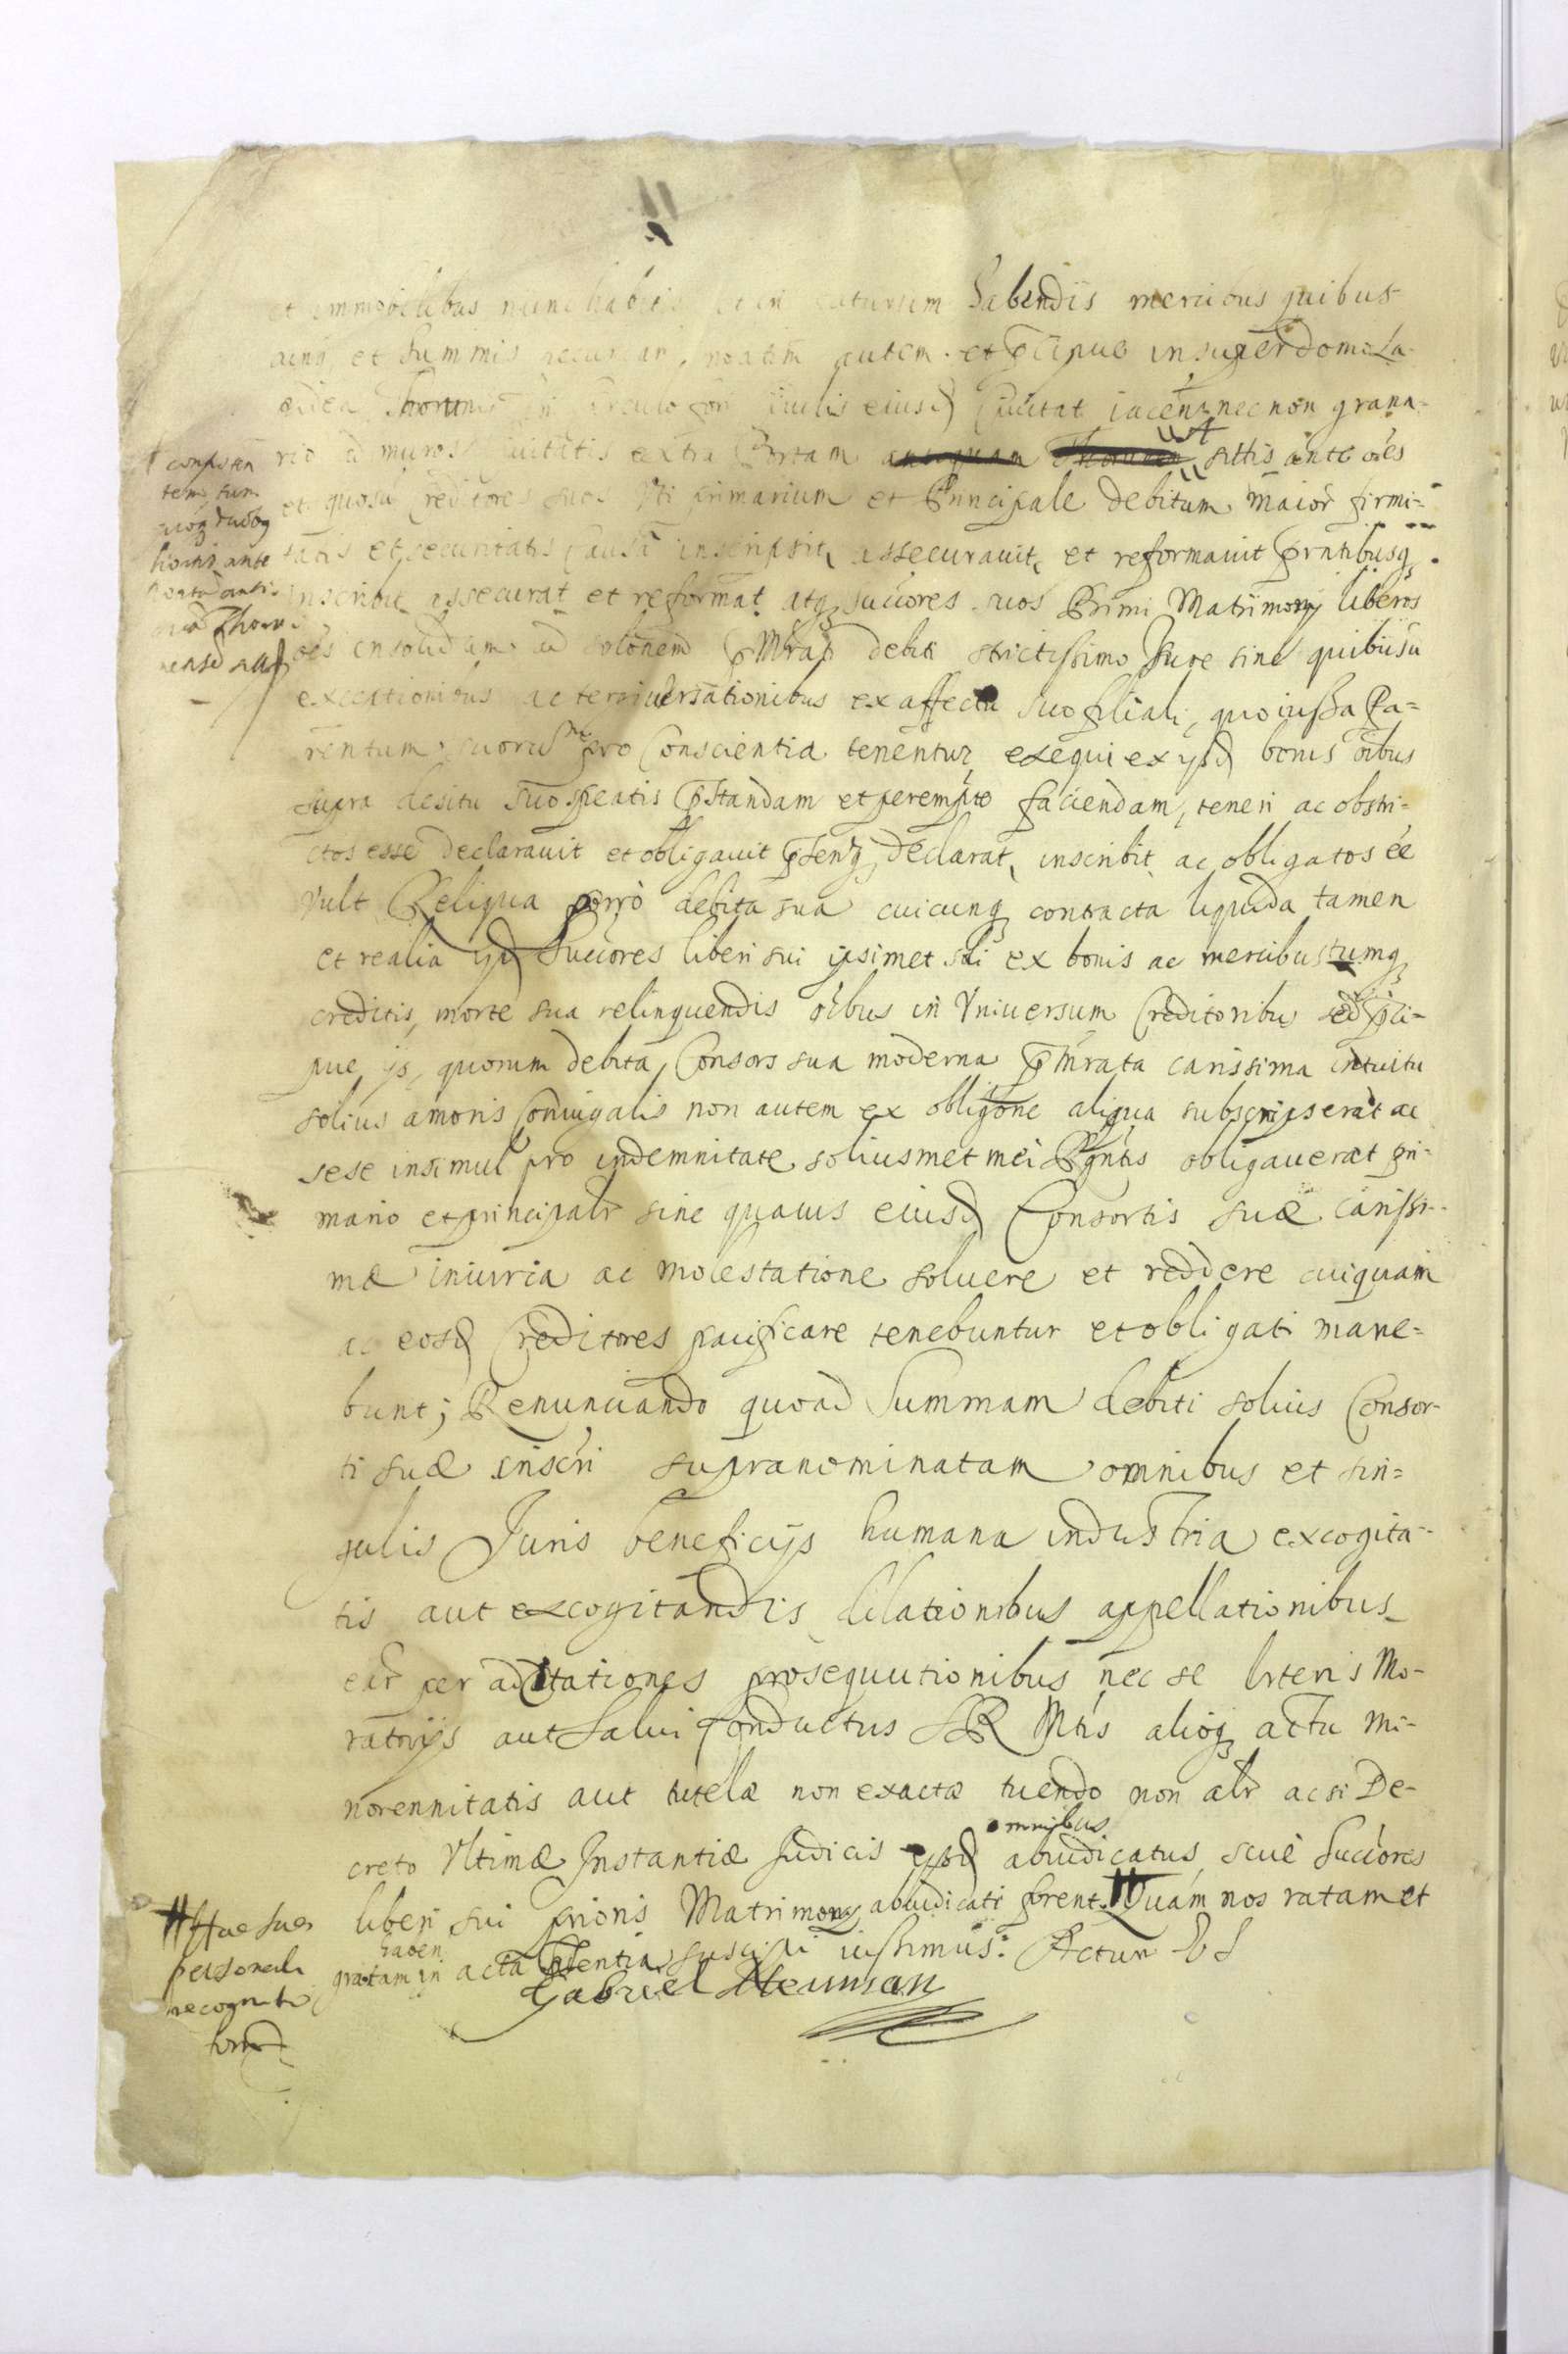 et immobilibus nunc habitis et in futurum habendis mercibus quibus
et summis autem et p̄cipue in super domo La
Thorunij in circulo fori Civilis eiusd Civitat iacen nec non grana-
rio ad muros Civitatis extra Portam antiquam Thorunen sitis ante oēs
et quosu Creditores suos Vti primarium et Principale debitum maior firmi-
tatis et securitatis causa inscripsit, assecurauit, et reformauit prntibusq
inscribit assecurat et reformat atq succores suos Primi Matrimonij liberos
oēs insolidum ad solonem debiti strictissimo Jure sine quibusu
exceptionibus ac tergiversationibus ex affectu suo filiali, quo iussa Pa=
rentum suoru pro Conscientia tenentur, exequi ex ijsd bonis oibus
supra de situ suo sp̄catis p̄standam et perempto faciendam, teneri ac obstri-
ctos esse declarauit et obligauit declarat, inscribit ac obligatos ēē
vult Reliqua porrò debita sua cuicunq contracta liquida tamen
et realia ijd Succores liberi sui ipsimet soli ex bonis ac mercibus tumq
creditis, morte sua relinquendis oibus in Vniuersum Creditoribu sed p̄ci-
pue ijs, quorum debita, Consors sua moderna carissima intuitu
solius amoris Coniugalis non autem ex obligone aliqua subscripserat ac
sese insimul pro indemnitate soliusmet mei obligauerat pri-
mario et principalr sine quauis eiusd Consortis suæ carissi-
mæ iniuria ac molestatione soluere et reddere cuiquam
ac eosd Creditores pacificare tenebuntur et obligati mane=
bunt; Renunciando quoad Summam debiti solius Consor-
ti suæ inscri supranominatam omnibus et sin=
gulis Juris beneficijs humana industria excogita-
tis aut excogitandis dilationibus appellationibus
ear per adcitationes prosequutionibus nec se Lrteris Mo-
ratorijs aut Salui Conductus SR Mtis alioq actu mi-
norennitatis aut tutelæ non exactæ tuendo non alr ac si De-
omnibus
creto Vltimæ Instantiæ Judicis abiudicatus seue Succores
liberi sui prioris Matrimonij abiudicati forent. Quam nos ratam et
haben
gratam in acta p̄sentia suscipi iussimus. Actum
Gabriel Neuman
ante
Thoru
Hac sua
personali
recognito